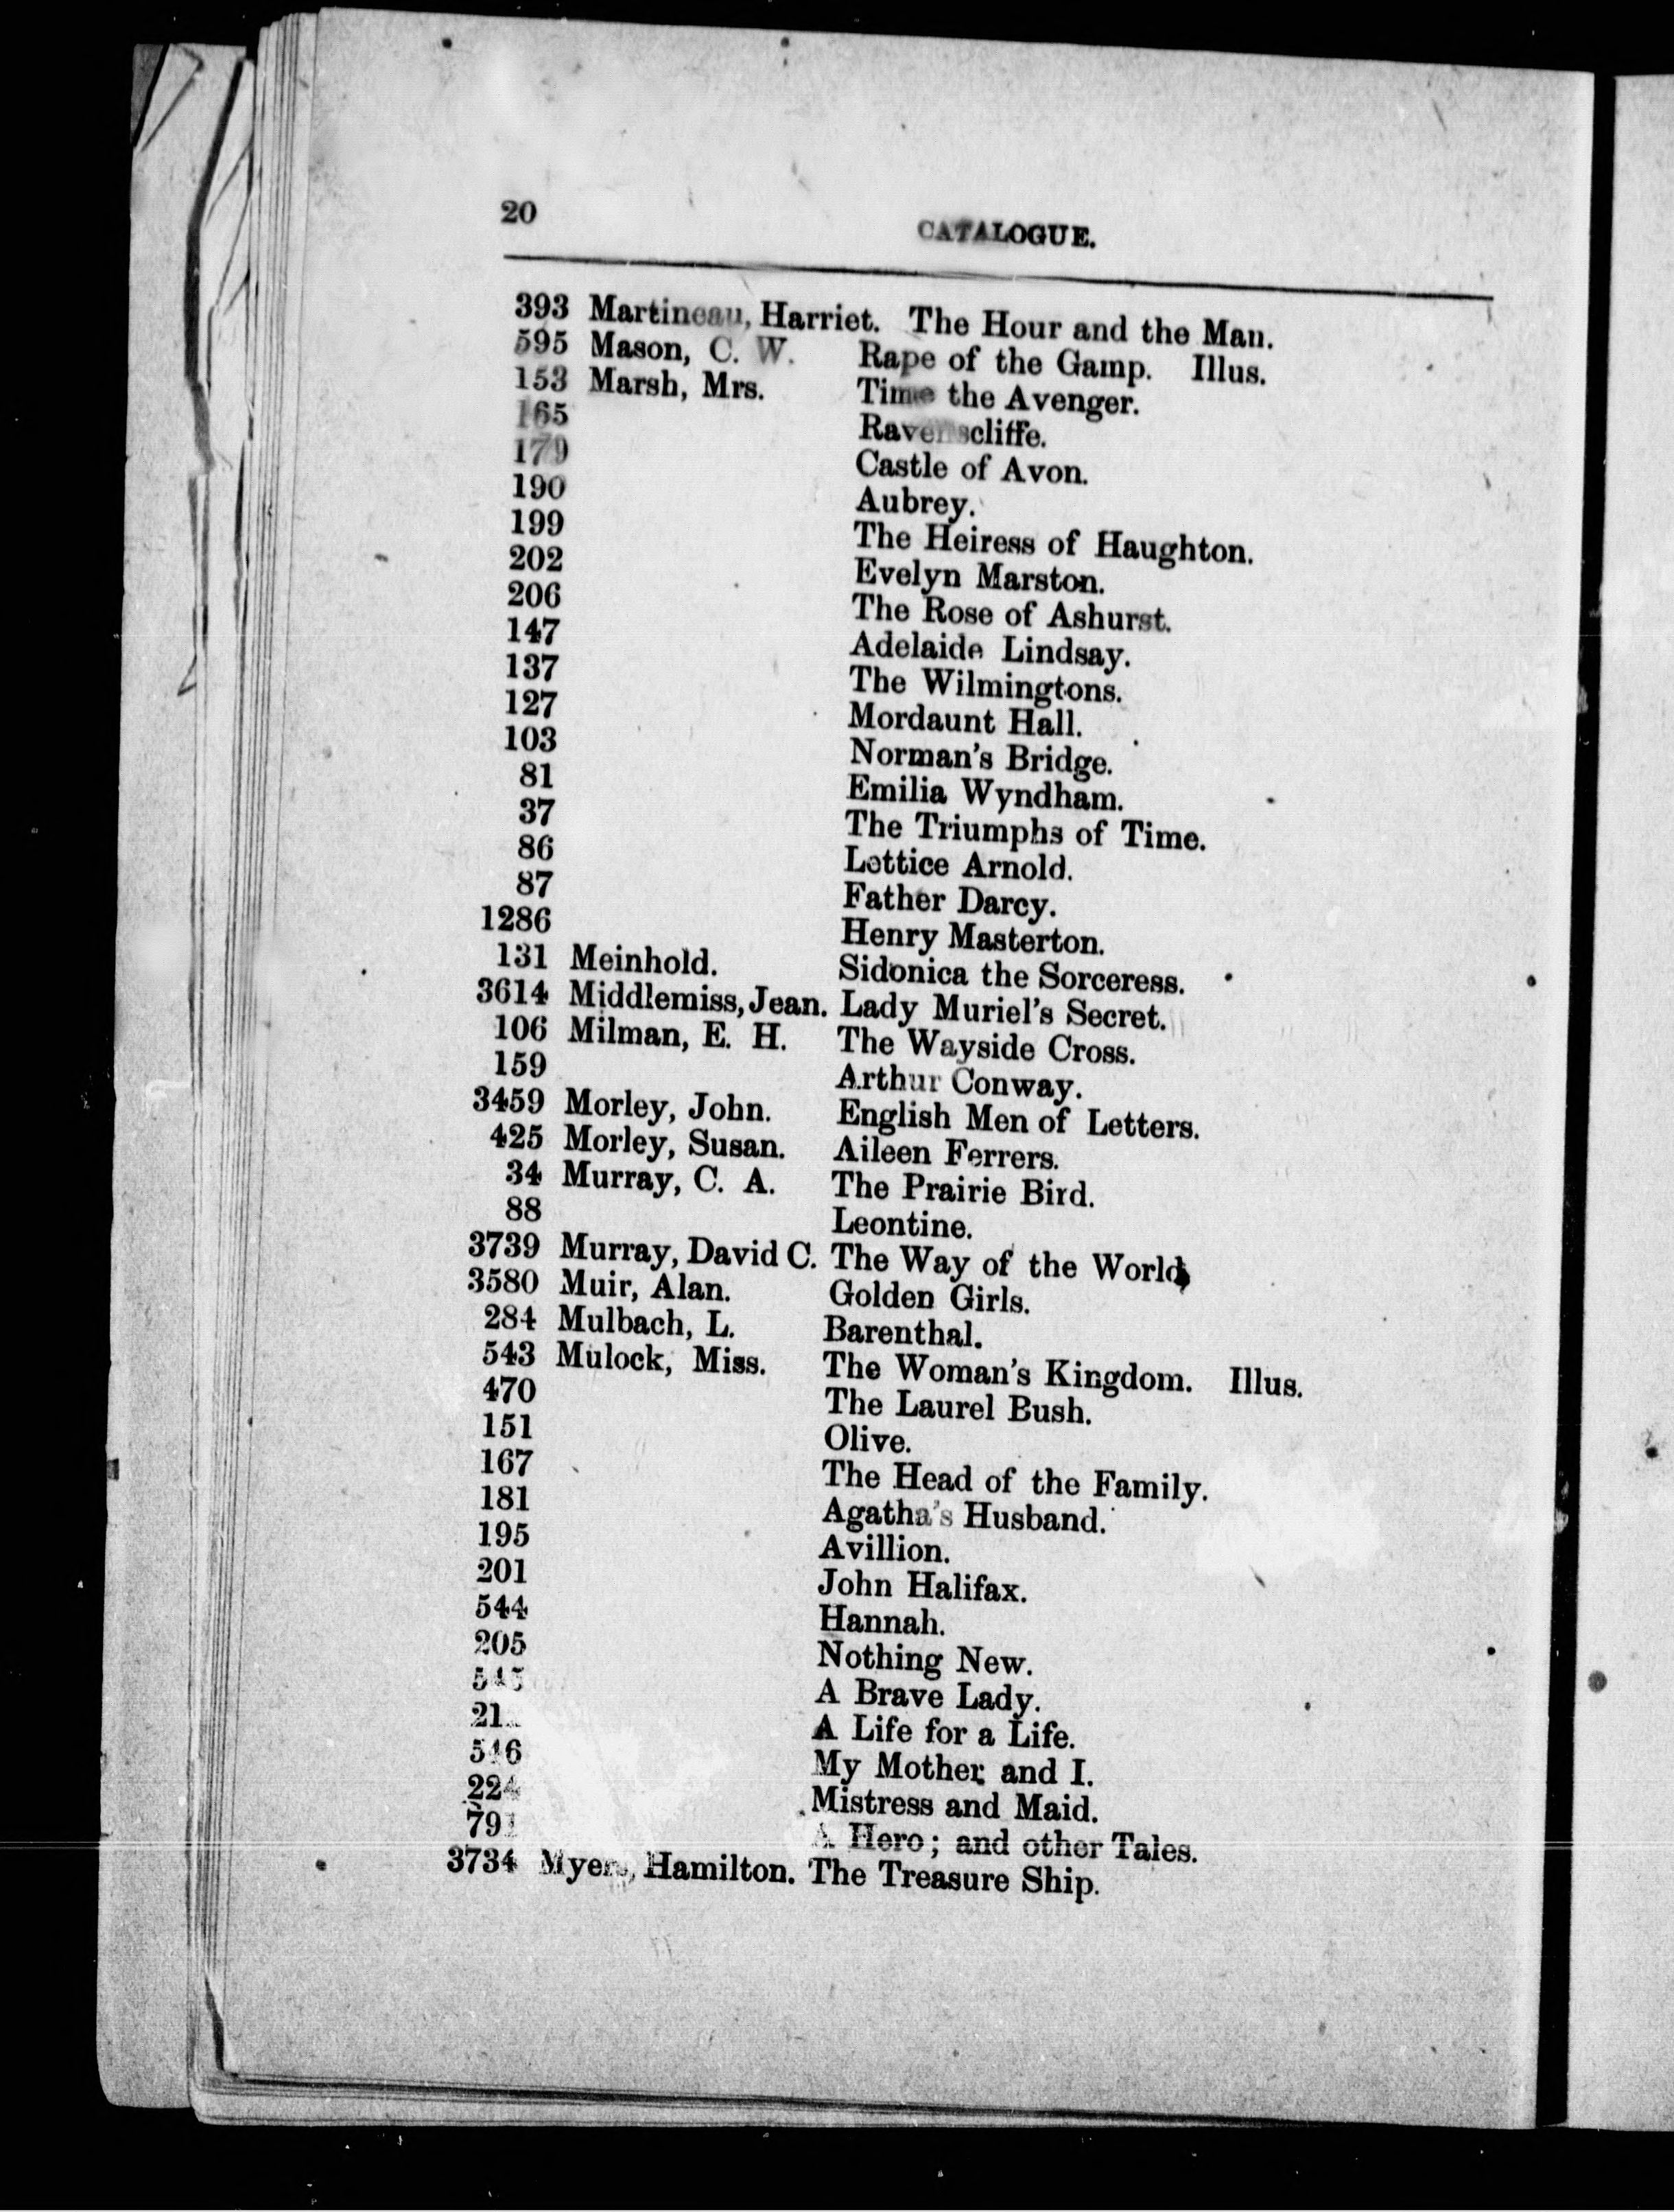 20
CATALOGUE.
393 Martineau, Harriet. The Hour and the Man.
595 Mason, C. W. Rape of the Gamp. Illus.
153 Marsh, Mrs. Time the Avenger.
165 Ravenscliffe.
179 Castle of Avon.
190 Aubrey.
199 The Heiress of Haughton.
202 Evelyn Marston.
206 The Rose of Ashurst.
147 Adelaide Lindsay.
137 The Wilmingtons.
127 Mordaunt Hall.
103 Norman's Bridge.
81 Emilia Wyndham.
37 The Triumphs of Time.
86 Lettice Arnold.
87 Father Darcy.
1286 Henry Masterton.
131 Meinhold. Sidonica the Sorceress.
3614 Middlemiss, Jean. Lady Muriel's Secret.
106 Milman, E. H. The Wayside Cross.
159 Arthur Conway.
3459 Morley, John. English Men of Letters.
425 Morley, Susan. Aileen Ferrers.
34 Murray, C. A. The Prairie Bird.
88 Leontine.
3739 Murray, David C. The Way of the World
3580 Muir, Alan. Golden Girls.
284 Mulbach, L. Barenthal.
543 Mulock, Miss. The Woman's Kingdom. Illus.
470 The Laurel Bush.
151 Olive.
167 The Head of the Family.
181 Agatha's Husband.
195 Avillion.
201 John Halifax.
544 Hannah.
205 Nothing New.
A Brave Lady.
A Life for a Life.
546 My Mother and I.
224 Mistress and Maid.
A Hero; and other Tales.
3734 Myers, Hamilton. The Treasure Ship.